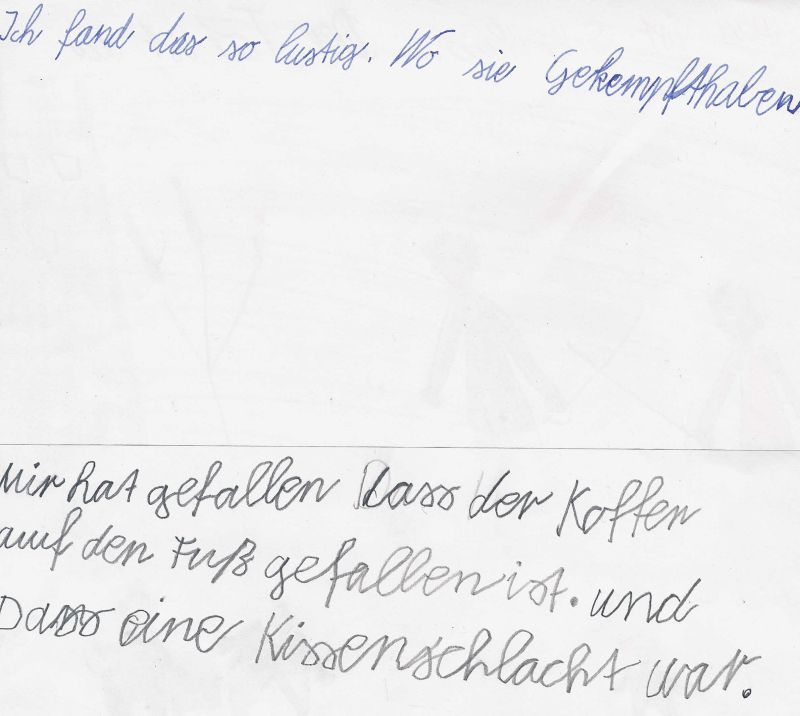 Ich fand das so lustig. Wo sie Gekempfthaben
Mir hat gefallen Dass der Koffer
auf den Fuß gefallen ist. und
Dass eine Kissenschlacht war.